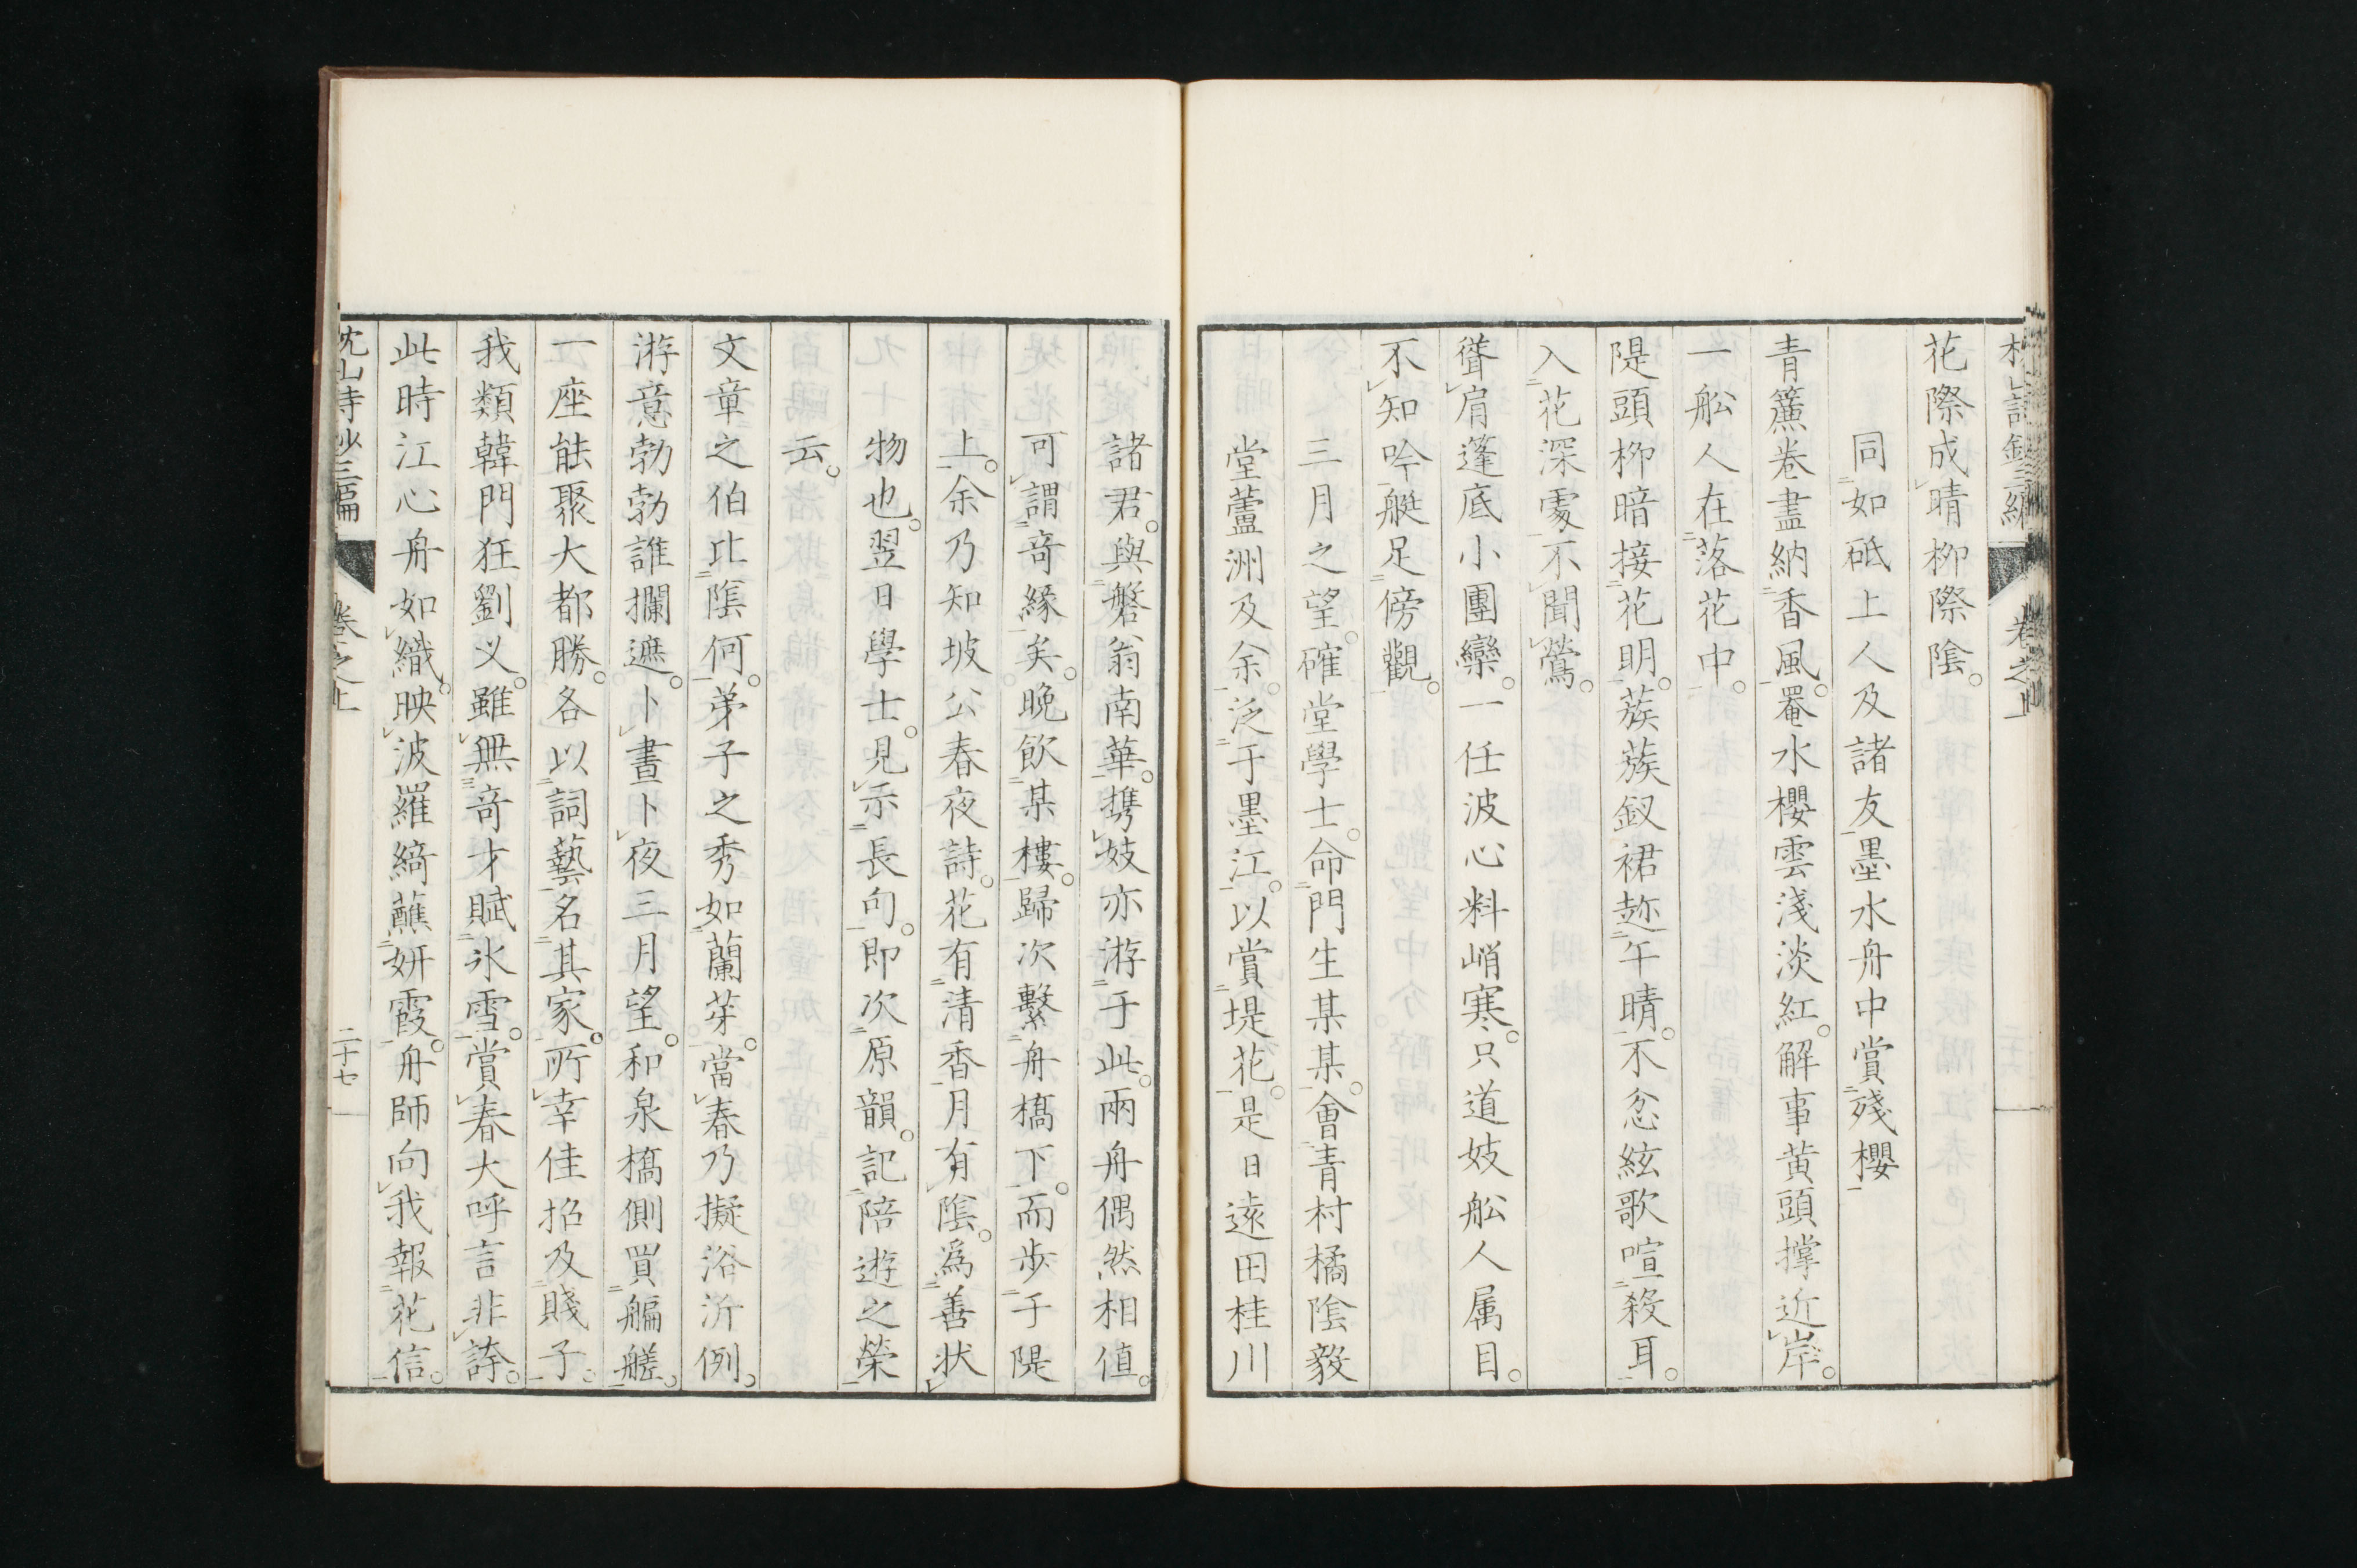 花際成晴柳際陰。
同如砥上人及諸友墨水舟中賞殘櫻
青簾卷盡納香風。罨水櫻雲淺淡紅。解事黄頭撑近岸。
一舩人在落花中。
隄頭柳暗接花明。蔟蔟釵裙趂午晴。不忿絃歌喧殺耳。
入花深處不聞鶯。
聳肩蓬底小團欒。一任波心料峭寒。只道妓舩人属目。
不知吟艇足傍觀。
三月之望。確堂學士。命門生某某。會青村橘陰毅
堂蘆洲及余。泛于墨江。以賞堤花。是日遠田桂川
諸君。與磐翁南華。携妓亦游于此。兩舟偶然相値。
可謂奇緣矣。晩飲某樓。歸次繫舟橋下。而歩于隄
上。余乃知坡公春夜詩。花有清香月有陰。爲善状
物也。翌日學士。見示長句。即次原韻。記陪遊之榮
云。
文章之伯比陰何。弟子之秀如蘭芽。當春乃擬浴沂例。
游意勃勃誰攔遮。卜晝卜夜三月望。和泉橋側買艑艖。
一座能聚大都勝。各以詞藝名其家。所幸佳招及賤子。
我類韓門狂劉义。雖無奇才賦氷雪。賞春大呼言非誇。
此時江心舟如織。映波羅綺蘸妍霞。舟師向我報花信。
枕山詩鈔三編 卷之上 二十七